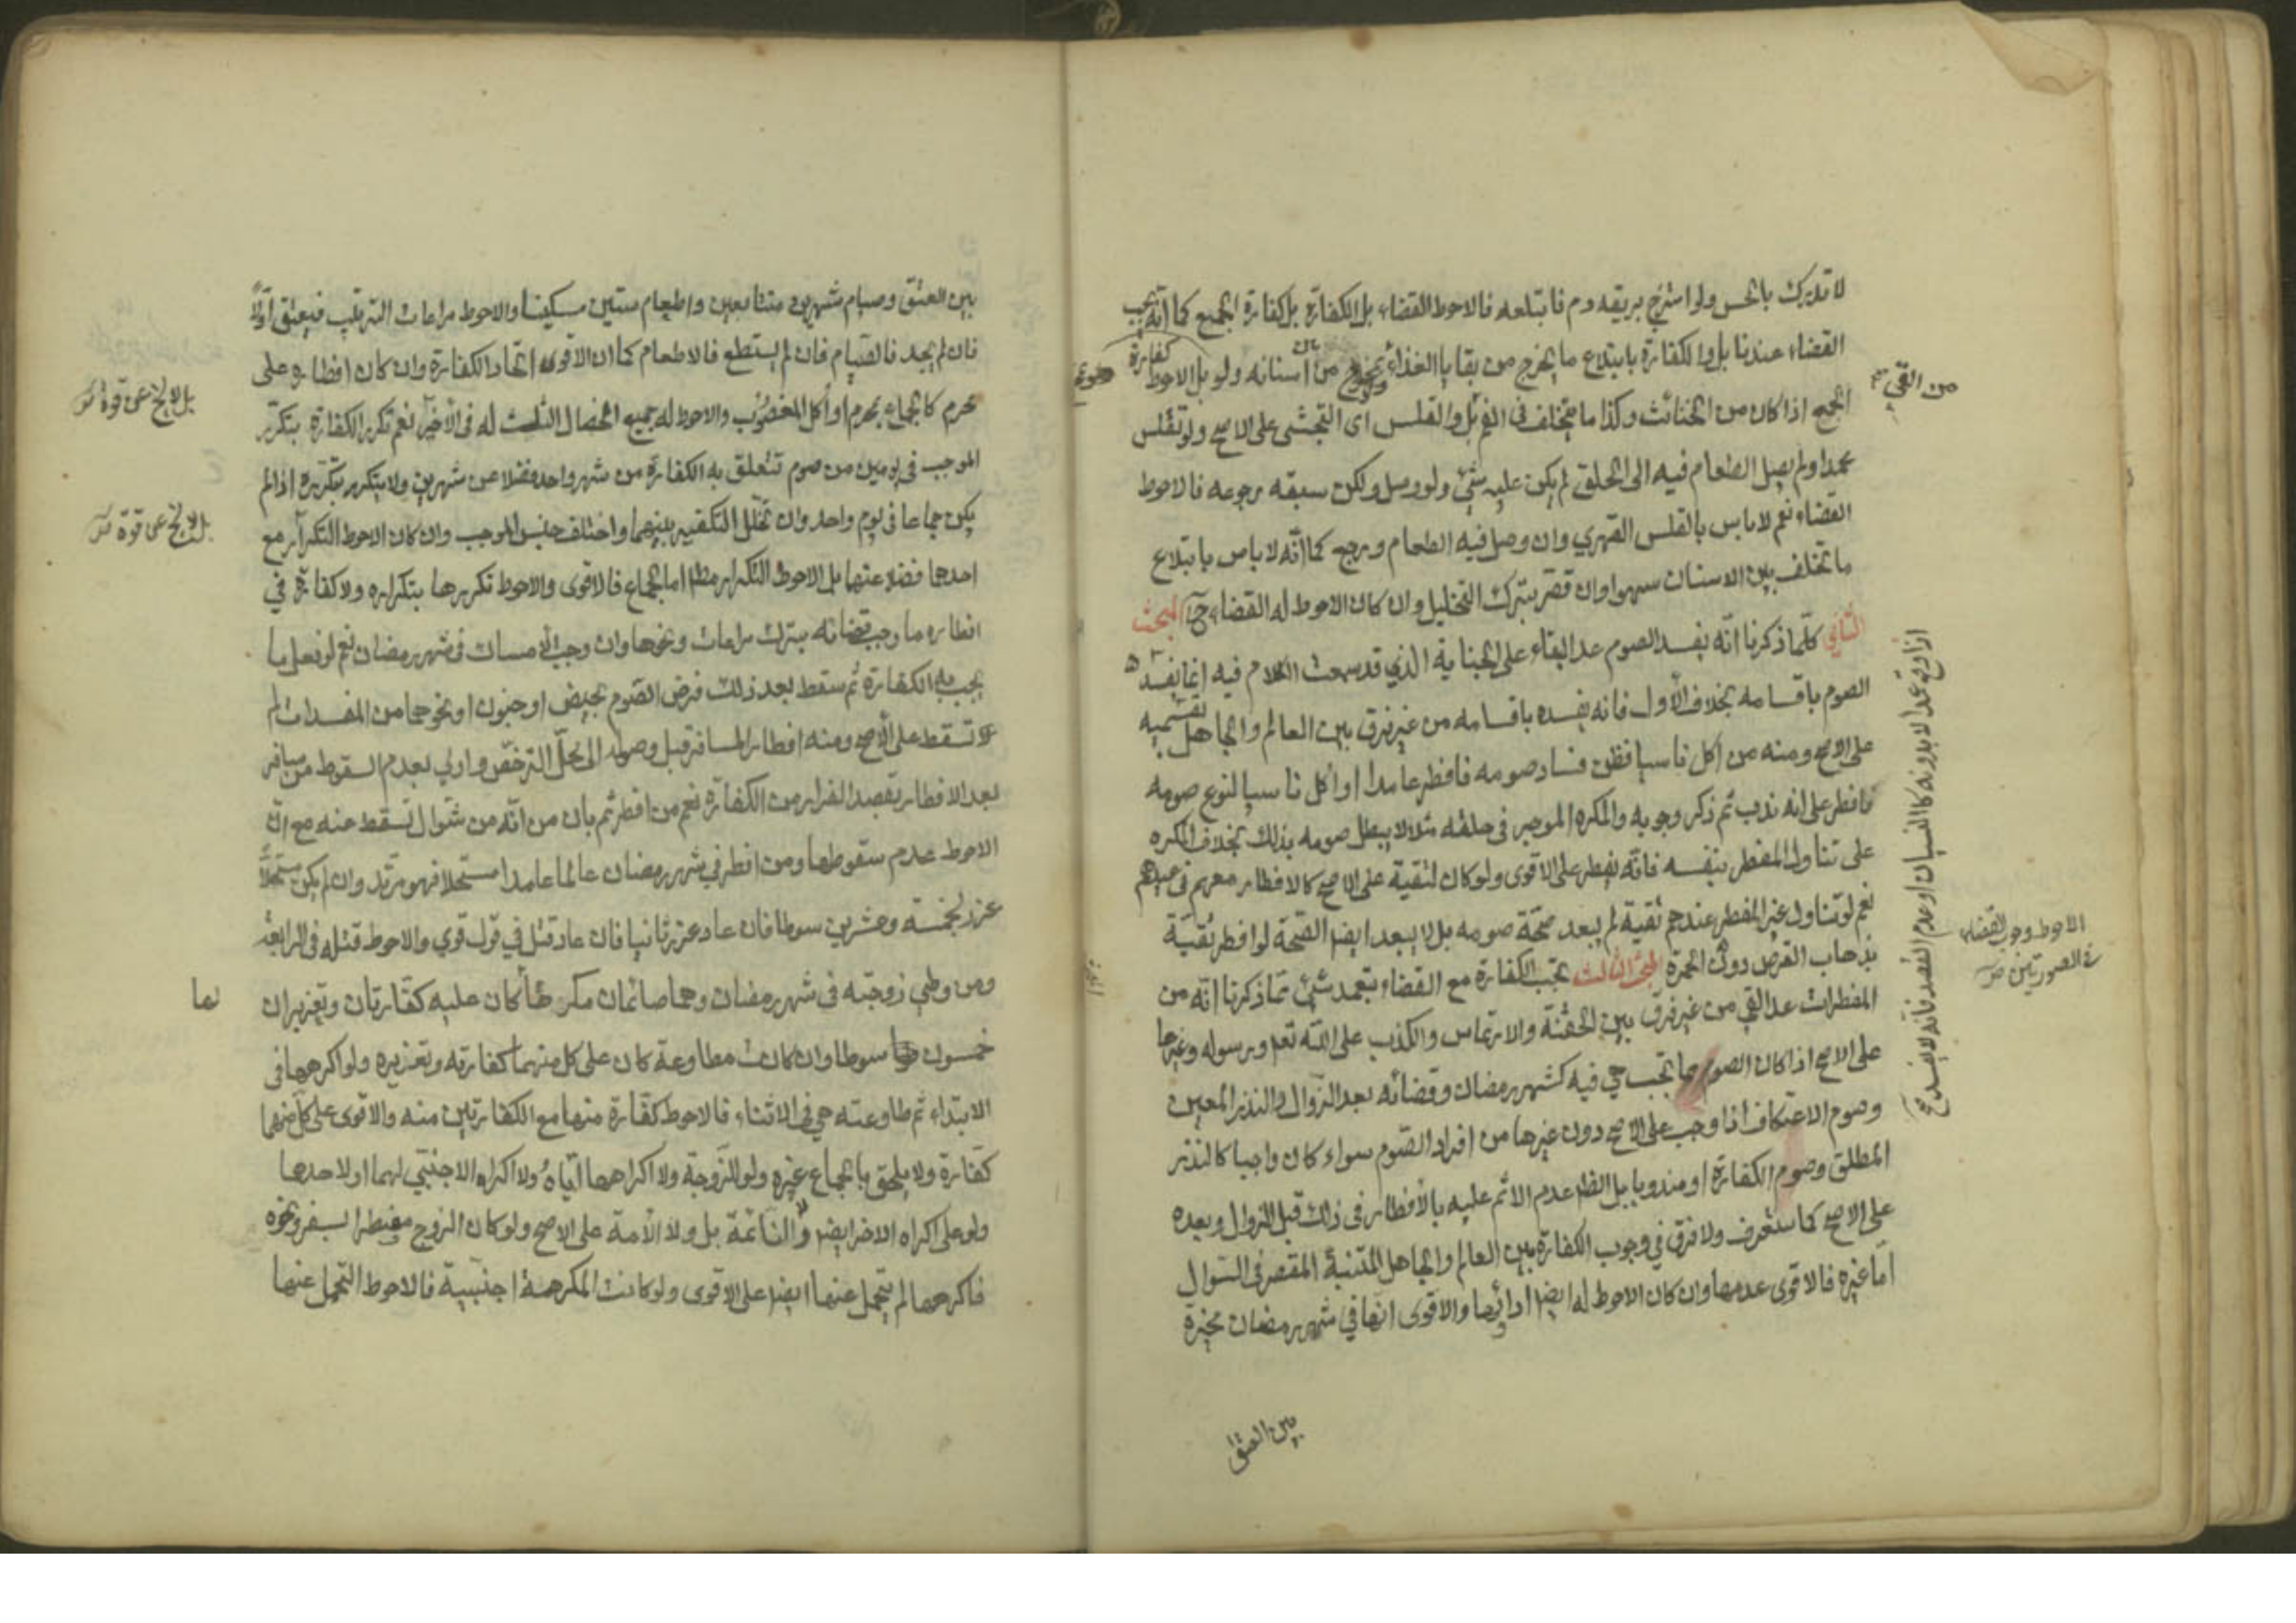 لا تدرك بالحس ولو امتزج بريقه دم فابتلعه فالاحوط القضاء بل الكفارة بل كفارة الجمع كما انه يجب
القضاء عندنا بل والكفارة بابتلاع ما يخرج من بقايا الغذاء من بين اسنانه ولو بل الاحوط كفارة
الجمع اذا كان من الخبائث وكذا ما يتخلف في الفم بل والقلس اى التجشى على الاصح ولو تقلس
من القئ
عمدا ولم يصل الطعام فيه الى الحلق لم يكن عليه شئ ولو وصل ولكن سبقه رجوعه فالاحوط
القضاء نعم لا باس بالقلس القهري وان وصل فيه الطعام ورجع كما انه لا باس بابتلاع
ما تخلف بين الاسنان سهوا وان قصر بترك التخليل وان كان الاحوط له القضاء ح المبحث
الثاني كلما ذكرنا انه يفسد الصوم عدا البقاء على الجنابة الذي قد سمعت الكلام فيه انما يفسد
الصوم باقسامه بخلاف الأول فانه يفسده باقسامه من غير فرق بين العالم والجاهل بقسميه
اذا وقع عمدا لا بدونه كالنسيان او عدم القصد فانه لا يفسد ح
على الاصح ومنه من اكل ناسيا فظن فساد صومه فافطر عامدا او اكل ناسيا لنوع صومه
فافطر على انه ندب ثم ذكر وجوبه والمكره الموجر في حلقه مثلا لا يبطل صومه بذلك بخلاف المكره
على تناول المفطر بنفسه فانه يفطر على الاقوى ولو كان لتقية على الاصح كالافطار معهم في عيدهم
نعم لو تناول غير المفطر عندهم تقية لم يبعد صحة صومه بل لا يبعد ايضا الصحة لو افطر تقية
الاحوط وجوب القضاء
في الصورتين
بذهاب القرص دون الحمرة المبحث الثالث تجب الكفارة مع القضاء بتعمد شئ مما ذكرنا انه من
المفطرات عدا القي من غير فرق بين الحقنة والارتماس والكذب على الله تعه ورسوله وغيرها
على الاصح اذا كان الصوم مما تجب هي فيه كشهر رمضان وقضائه بعد الزوال والنذر المعين
وصوم الاعتكاف اذا وجب على الاصح دون غيرها من افراد الصوم سواء كان واجبا كالنذر
المطلق وصوم الكفارة او مندوبا بل الظ عدم الاثم عليه بالافطار في ذلك قبل الزوال وبعده
على الاصح كما ستعرف ولا فرق في وجوب الكفارة بين العالم والجاهل المتنبه المقصر في السؤال
اما غيره فالاقوى عدمها وان كان الاحوط له ايضا ادائها والاقوى انها في شهر رمضان مخيرة
بين العتق
بين العتق وصيام شهرين متتابعين واطعام ستين مسكينا والاحوط مراعات الترتيب فيعتق اولا
فان لم يجد فالصيام فان لم يستطع فالاطعام كما ان الاقوى اتحاد الكفارة وان كان افطاره على
محرم كالجماع بمحرم او أكل المغصوب والاحوط له جميع الخصال الثلث له في الاخير نعم تكرر الكفارة بتكرر
بل لا يخ عن قوة
الموجب في يومين من صوم تتعلق به الكفارة من شهر واحد فضلا عن شهرين ولا يتكرر بتكرره اذا لم
يكن جماعا في يوم واحد وان تخلل التكفير بينهما واختلف جنس الموجب وان كان الاحوط التكرار مع
بل لا يخ عن قوة
احدها فضلا عنهما بل الاحوط التكرار مط اما الجماع فالاقوى والاحوط تكررها بتكراره ولا كفارة في
افطاره ما وجب قضائه بترك مراعات ونحوها وان وجب الامساك في شهر رمضان نعم لو فعل ما
يجب به الكفارة ثم سقط بعد ذلك فرض الصوم بحيض او جنون او نحوهما من المفسدات لم
تسقط على الاصح ومنه افطار المسافر قبل وصوله الى محل الترخص واولي بعدم السقوط من سافر
بعد الافطار بقصد الفرار من الكفارة نعم من افطر ثم بان من انه من شوال تسقط عنه مع ان
الاحوط عدم سقوطها ومن افطر في شهر رمضان عالما عامدا مستحلا فهو مرتد وان لم يكن مستحلا
عزر بخمسة وعشرين سوطا فان عاد عزر ثانيا فان عاد قتل في قول قوي والاحوط قتله في الرابعة
ومن وطي زوجته في شهر رمضان وهما صائمان مكرها كان عليه كفارتان وتعزيران
لها
خمسون سوطا وان كانت مطاوعة كان على كل منهما كفارته وتعزيره ولو اكرهها في
الابتداء ثم طاوعته هي في الاثناء فالاحوط كفارة منها مع الكفارتين منه والاقوى على كل منهما
كفارة ولا يلحق بالجماع غيره ولو للزوجة ولا اكراهها اياه ولا اكراه الاجنبي لهما او لاحدهما
ولو على اكراه الاخر ايضا ولا النائمة بل ولا الأمة على الاصح ولو كان الزوج مفطرا بسفر ونحوه
فاكرهها لم يتحمل عنها ايضا على الاقوى ولو كانت المكرهة اجنبية فالاحوط التحمل عنها